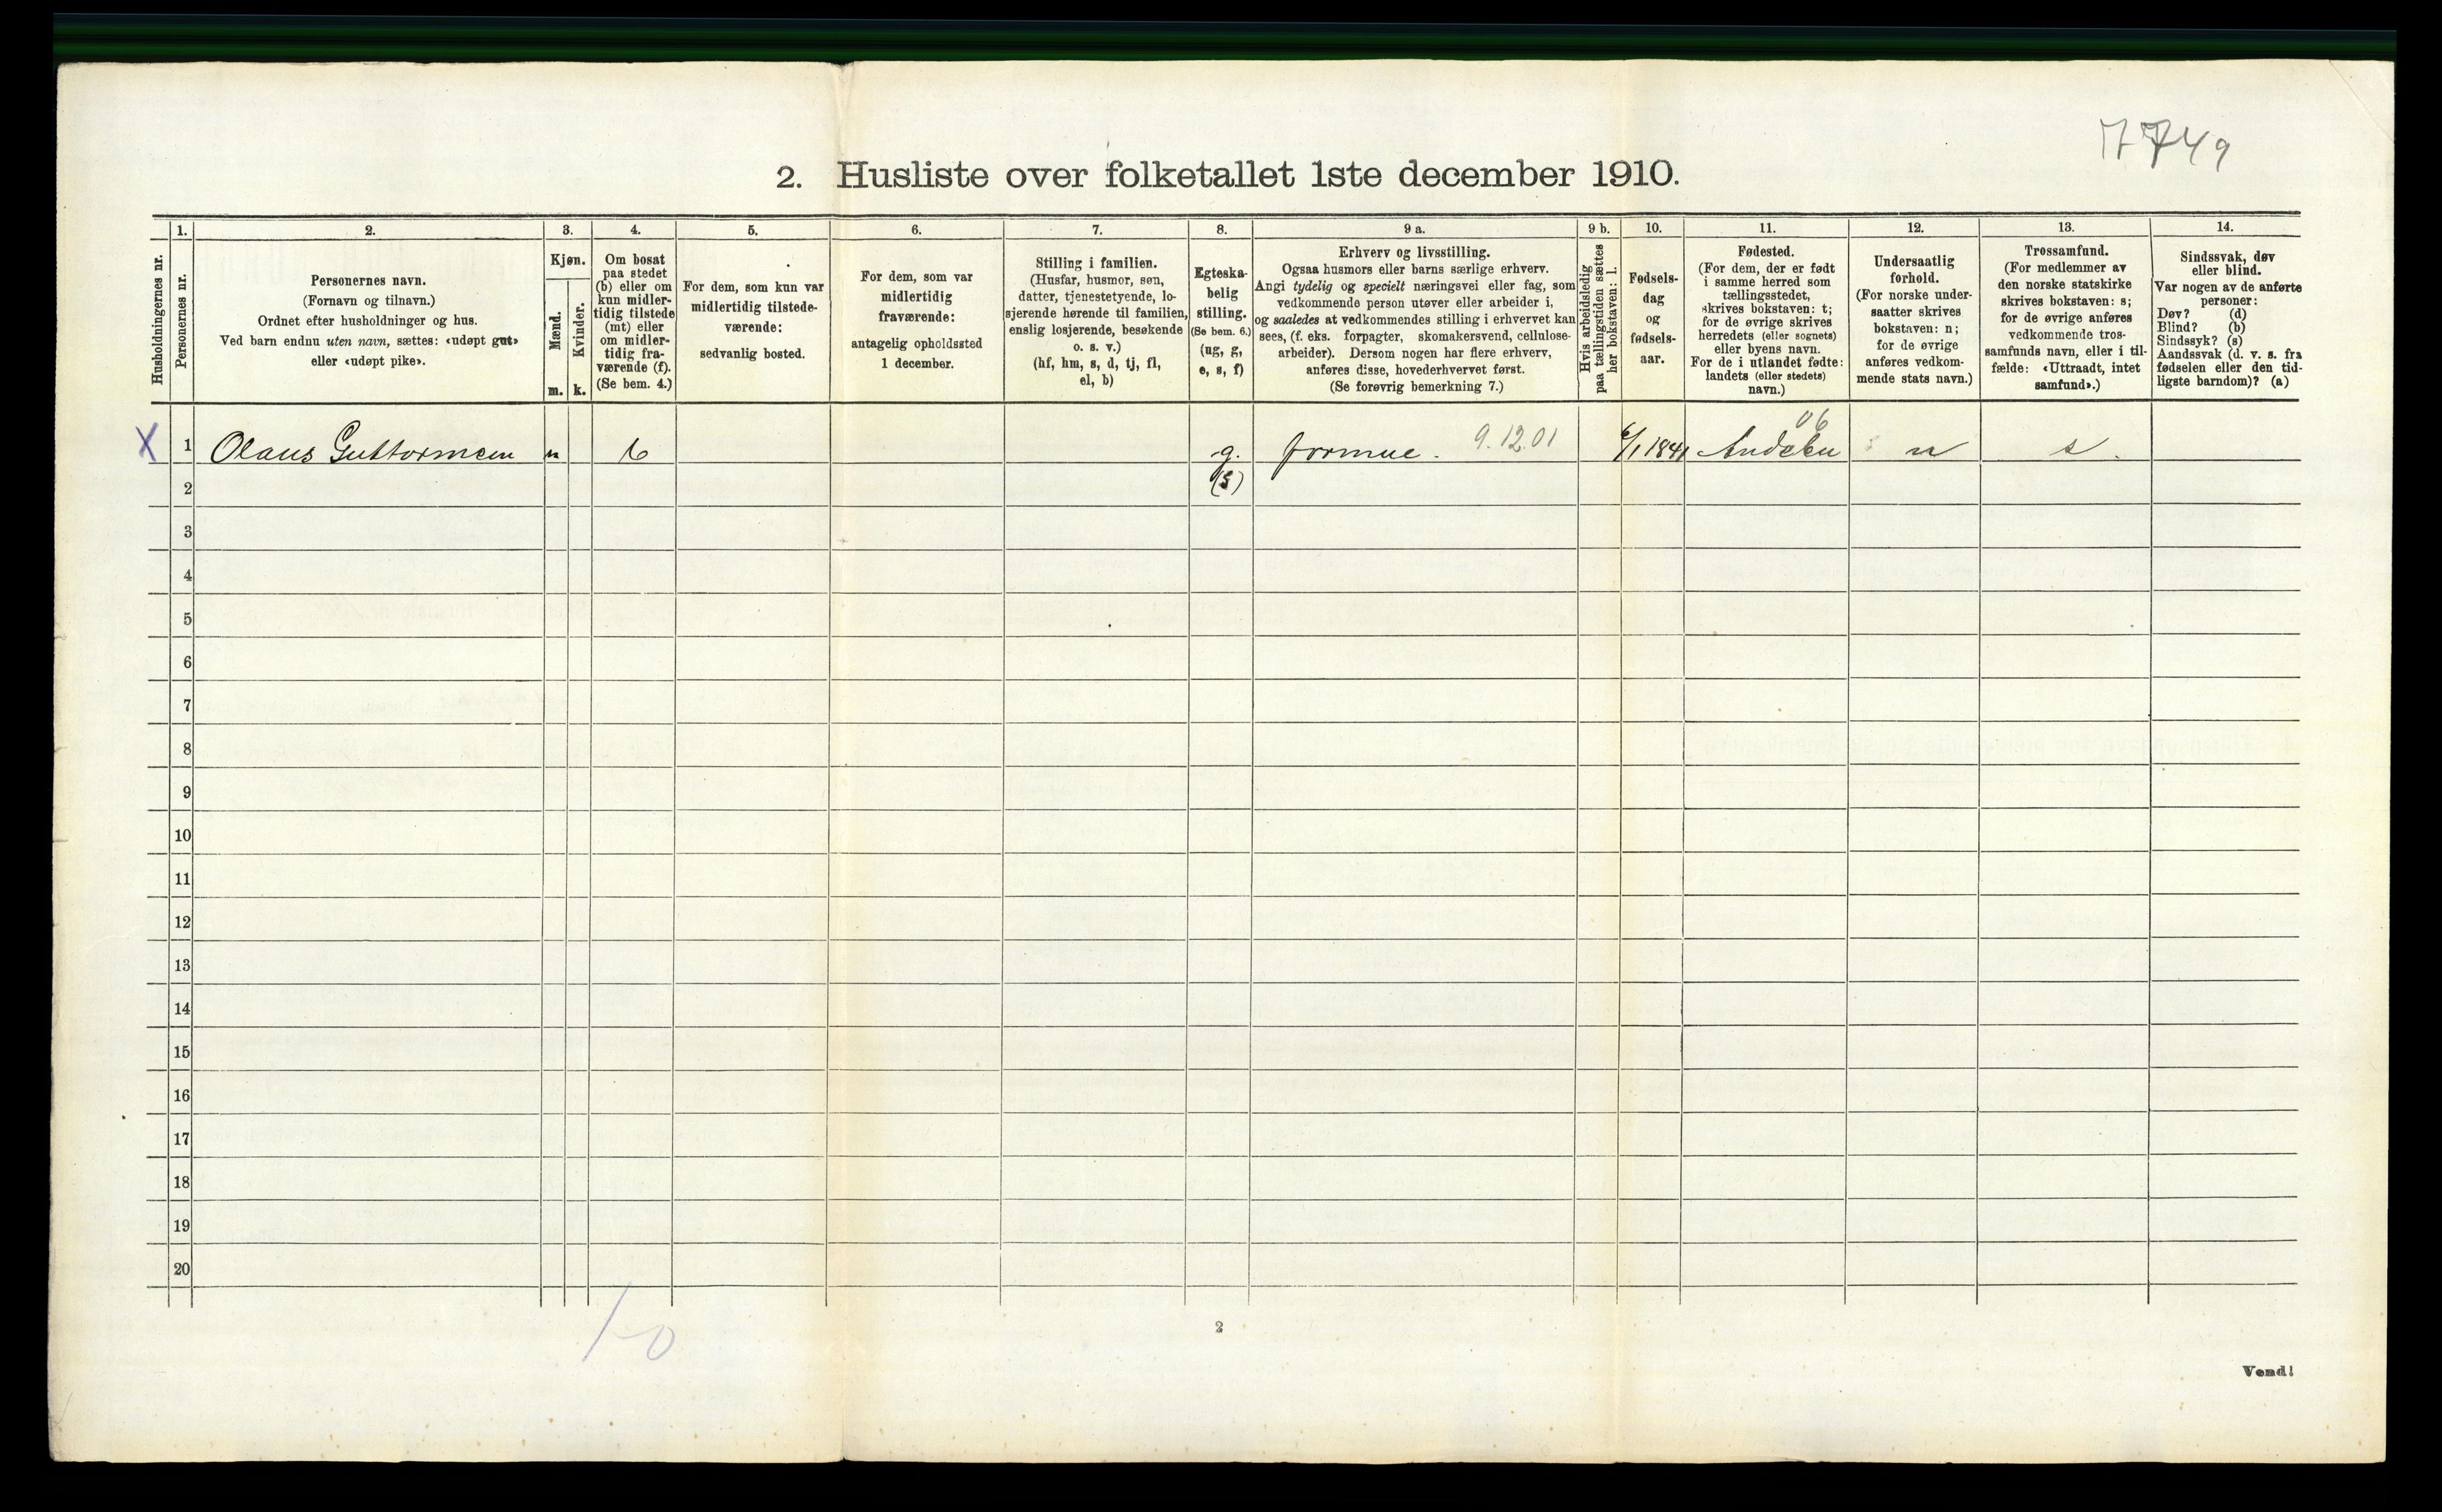 7749
2. Husliste over folketallet 1ste december 1910.
Husholdningernes nr.
1.
Personernes nr.
2.
Personernes navn.
(Fornavn og tilnavn.)
Ordnet efter husholdninger og hus.
Ved barn endnu uten navn, sættes: «udøpt gut»
eller «udøpt pike».
3.
Kjøn.
Mænd.
Kvinder.
m. k.
4.
Om bosat
paa stedet
(b) eller om
kun midler-
tidig tilstede
(mt) eller
om midler-
tidig fra-
værende (f).
(Se bem. 4.)
5.
For dem, som kun var
midlertidig tilstede-
værende:
sedvanlig bosted.
6.
For dem, som var
midlertidig
fraværende:
antagelig opholdssted
1 december.
7.
Stilling i familien.
(Husfar, husmor, søn,
datter, tjenestetyende, lo-
sjerende hørende til familien,
enslig losjerende, besøkende
o. s. v.)
(hf, hm, s, d, tj, fl,
el, b)
8.
Egteska-
belig
stilling.
(Se bem. 6.)
(ug, g,
e, s, f)
9 a.
Erhverv og livsstilling.
Ogsaa husmors eller barns særlige erhverv.
Angi tydelig og specielt næringsvei eller fag, som
vedkommende person utøver eller arbeider i,
og saaledes at vedkommendes stilling i erhvervet kan
sees, (f. eks. forpagter, skomakersvend, cellulose-
arbeider). Dersom nogen har flere erhverv,
anføres disse, hovederhvervet først.
(Se forøvrig bemerkning 7.)
9 b.
Hvis arbeidsledig
paa tællingstiden sættes
her bokstaven: l.
10.
Fødsels-
dag
og
fødsels-
aar.
11.
Fødested.
(For dem, der er født
i samme herred som
tællingsstedet,
skrives bokstaven: t;
for de øvrige skrives
herredets (eller sognets)
eller byens navn.
For de i utlandet fødte:
landets (eller stedets)
navn.)
12.
Undersaatlig
forhold.
(For norske under-
saatter skrives
bokstaven: n;
for de øvrige
anføres vedkom-
mende stats navn.)
13.
Trossamfund.
(For medlemmer av
den norske statskirke
skrives bokstaven: s;
for de øvrige anføres
vedkommende tros-
samfunds navn, eller i til-
fælde: «Uttraadt, intet
samfund».)
14.
Sindssvak, døv
eller blind.
Var nogen av de anførte
personer:
Døv? (d)
Blind? (b)
Sindssyk? (s)
Aandssvak (d. v. s. fra
fødselen eller den tid-
ligste barndom)? (a)
06
X 1 Olaus Guttormsen m b g. formue. 9.12.01 6/1 1841 Andebu n s.
2 (s)
3
4
5
6
7
8
9
10
11
12
13
14
15
16
17
18
19
20
1-0
2
Vend!